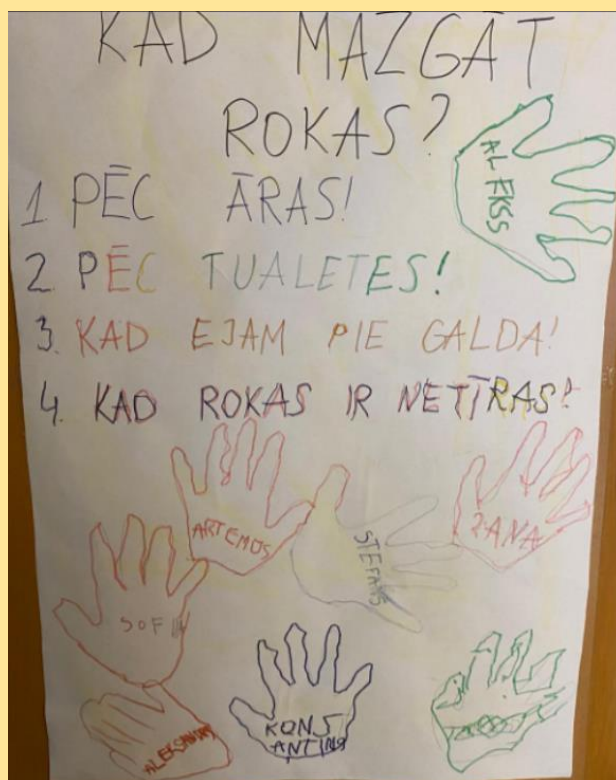 KAD MAZGĀT
ROKAS?
1 PĒC ĀRAS!
2. PĒC TUALETES!
3. KAD EJAM PIE GALDA!
4. KAD ROKAS IR NETĪRAS!
ARTEMOS
STEFANS
ŽANA
SOF
KONS
ANTINS